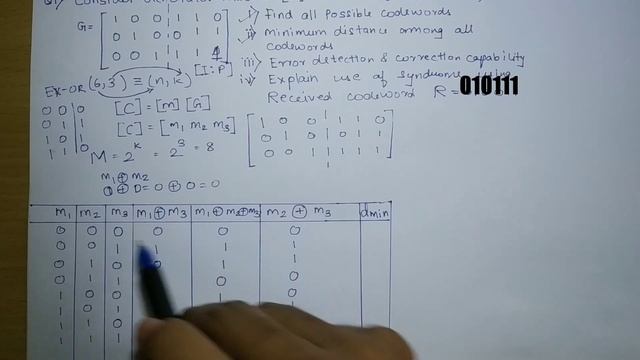 G = [ 1 0 0 1 1 0
0 1 0 0 1 1
0 0 1 1 1 1 ]
[I:P]
i) Find all possible codewords
ii) minimum distance among all
codewords
iii) Error detection & correction capability
iv) Explain use of syndrome using
Received codeword R = 010111
EX-OR (6,3) ≡ (n,k)
0 0 0
0 1 1
1 0 1
1 1 0
[C] = [m] [G]
[C] = [m1 m2 m3] [ 1 0 0 1 1 0
0 1 0 0 1 1
0 0 1 1 1 1 ]
M = 2^k = 2^3 = 8
m1 ⊕ m2
0 ⊕ 0 = 0 ⊕ 0 = 0
m1 m2 m3 m1 ⊕ m3 m1 ⊕ m2 ⊕ m3 m2 ⊕ m3 dmin
0 0 0 0 0 0
0 0 1 1 1 1
0 1 0 0 1 1
0 1 1 0 0
1 0 0 1 0
1 0 1
1 1 0
1 1 1